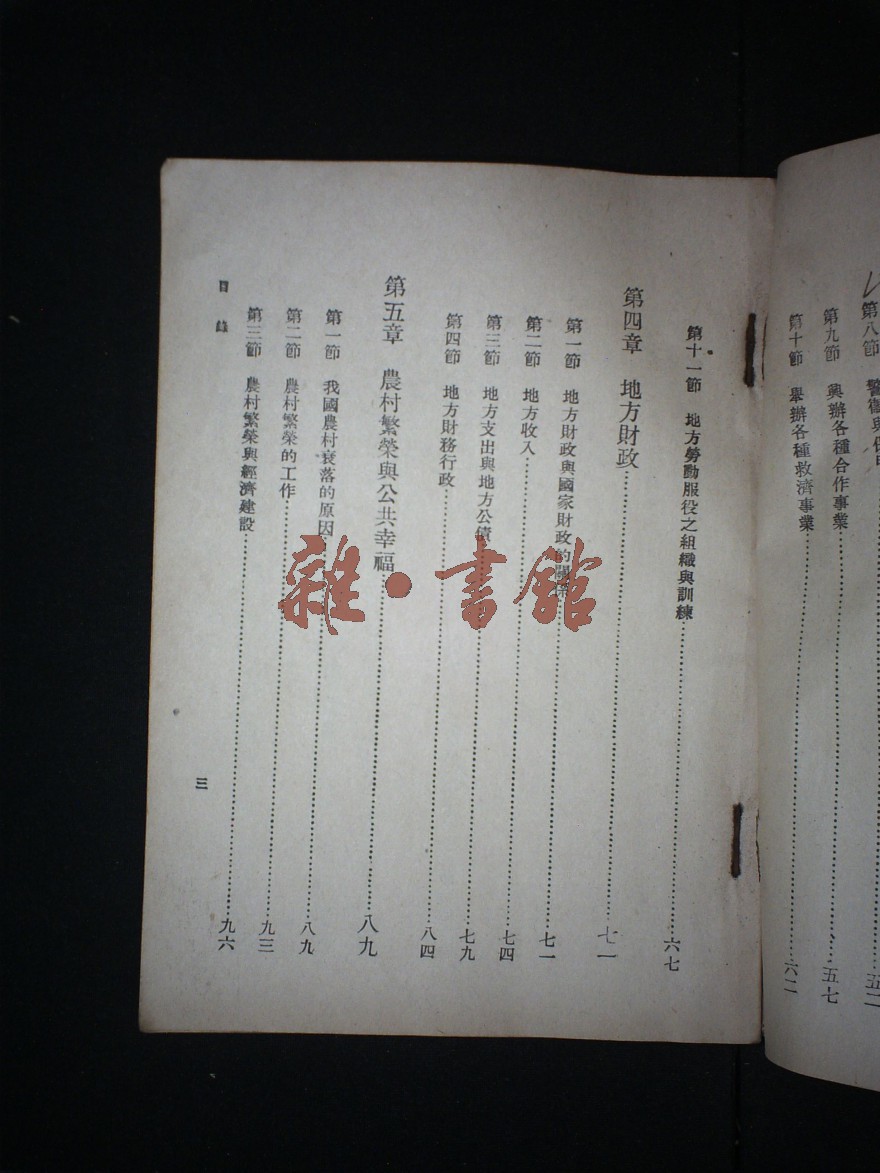 第八節 警衛與保甲……五二
第九節 興辦各種合作事業……五七
第十節 舉辦各種救濟事業……六二
第十一節 地方勞動服役之組織與訓練……六七
第四章 地方財政……七一
第一節 地方財政與國家財政的關係……七一
第二節 地方收入……七四
第三節 地方支出與地方公債……七九
第四節 地方財務行政……八四
第五章 農村繁榮與公共幸福……八九
第一節 我國農村衰落的原因……八九
第二節 農村繁榮的工作……九三
第三節 農村繁榮與經濟建設……九六
目錄
三
雜·書館